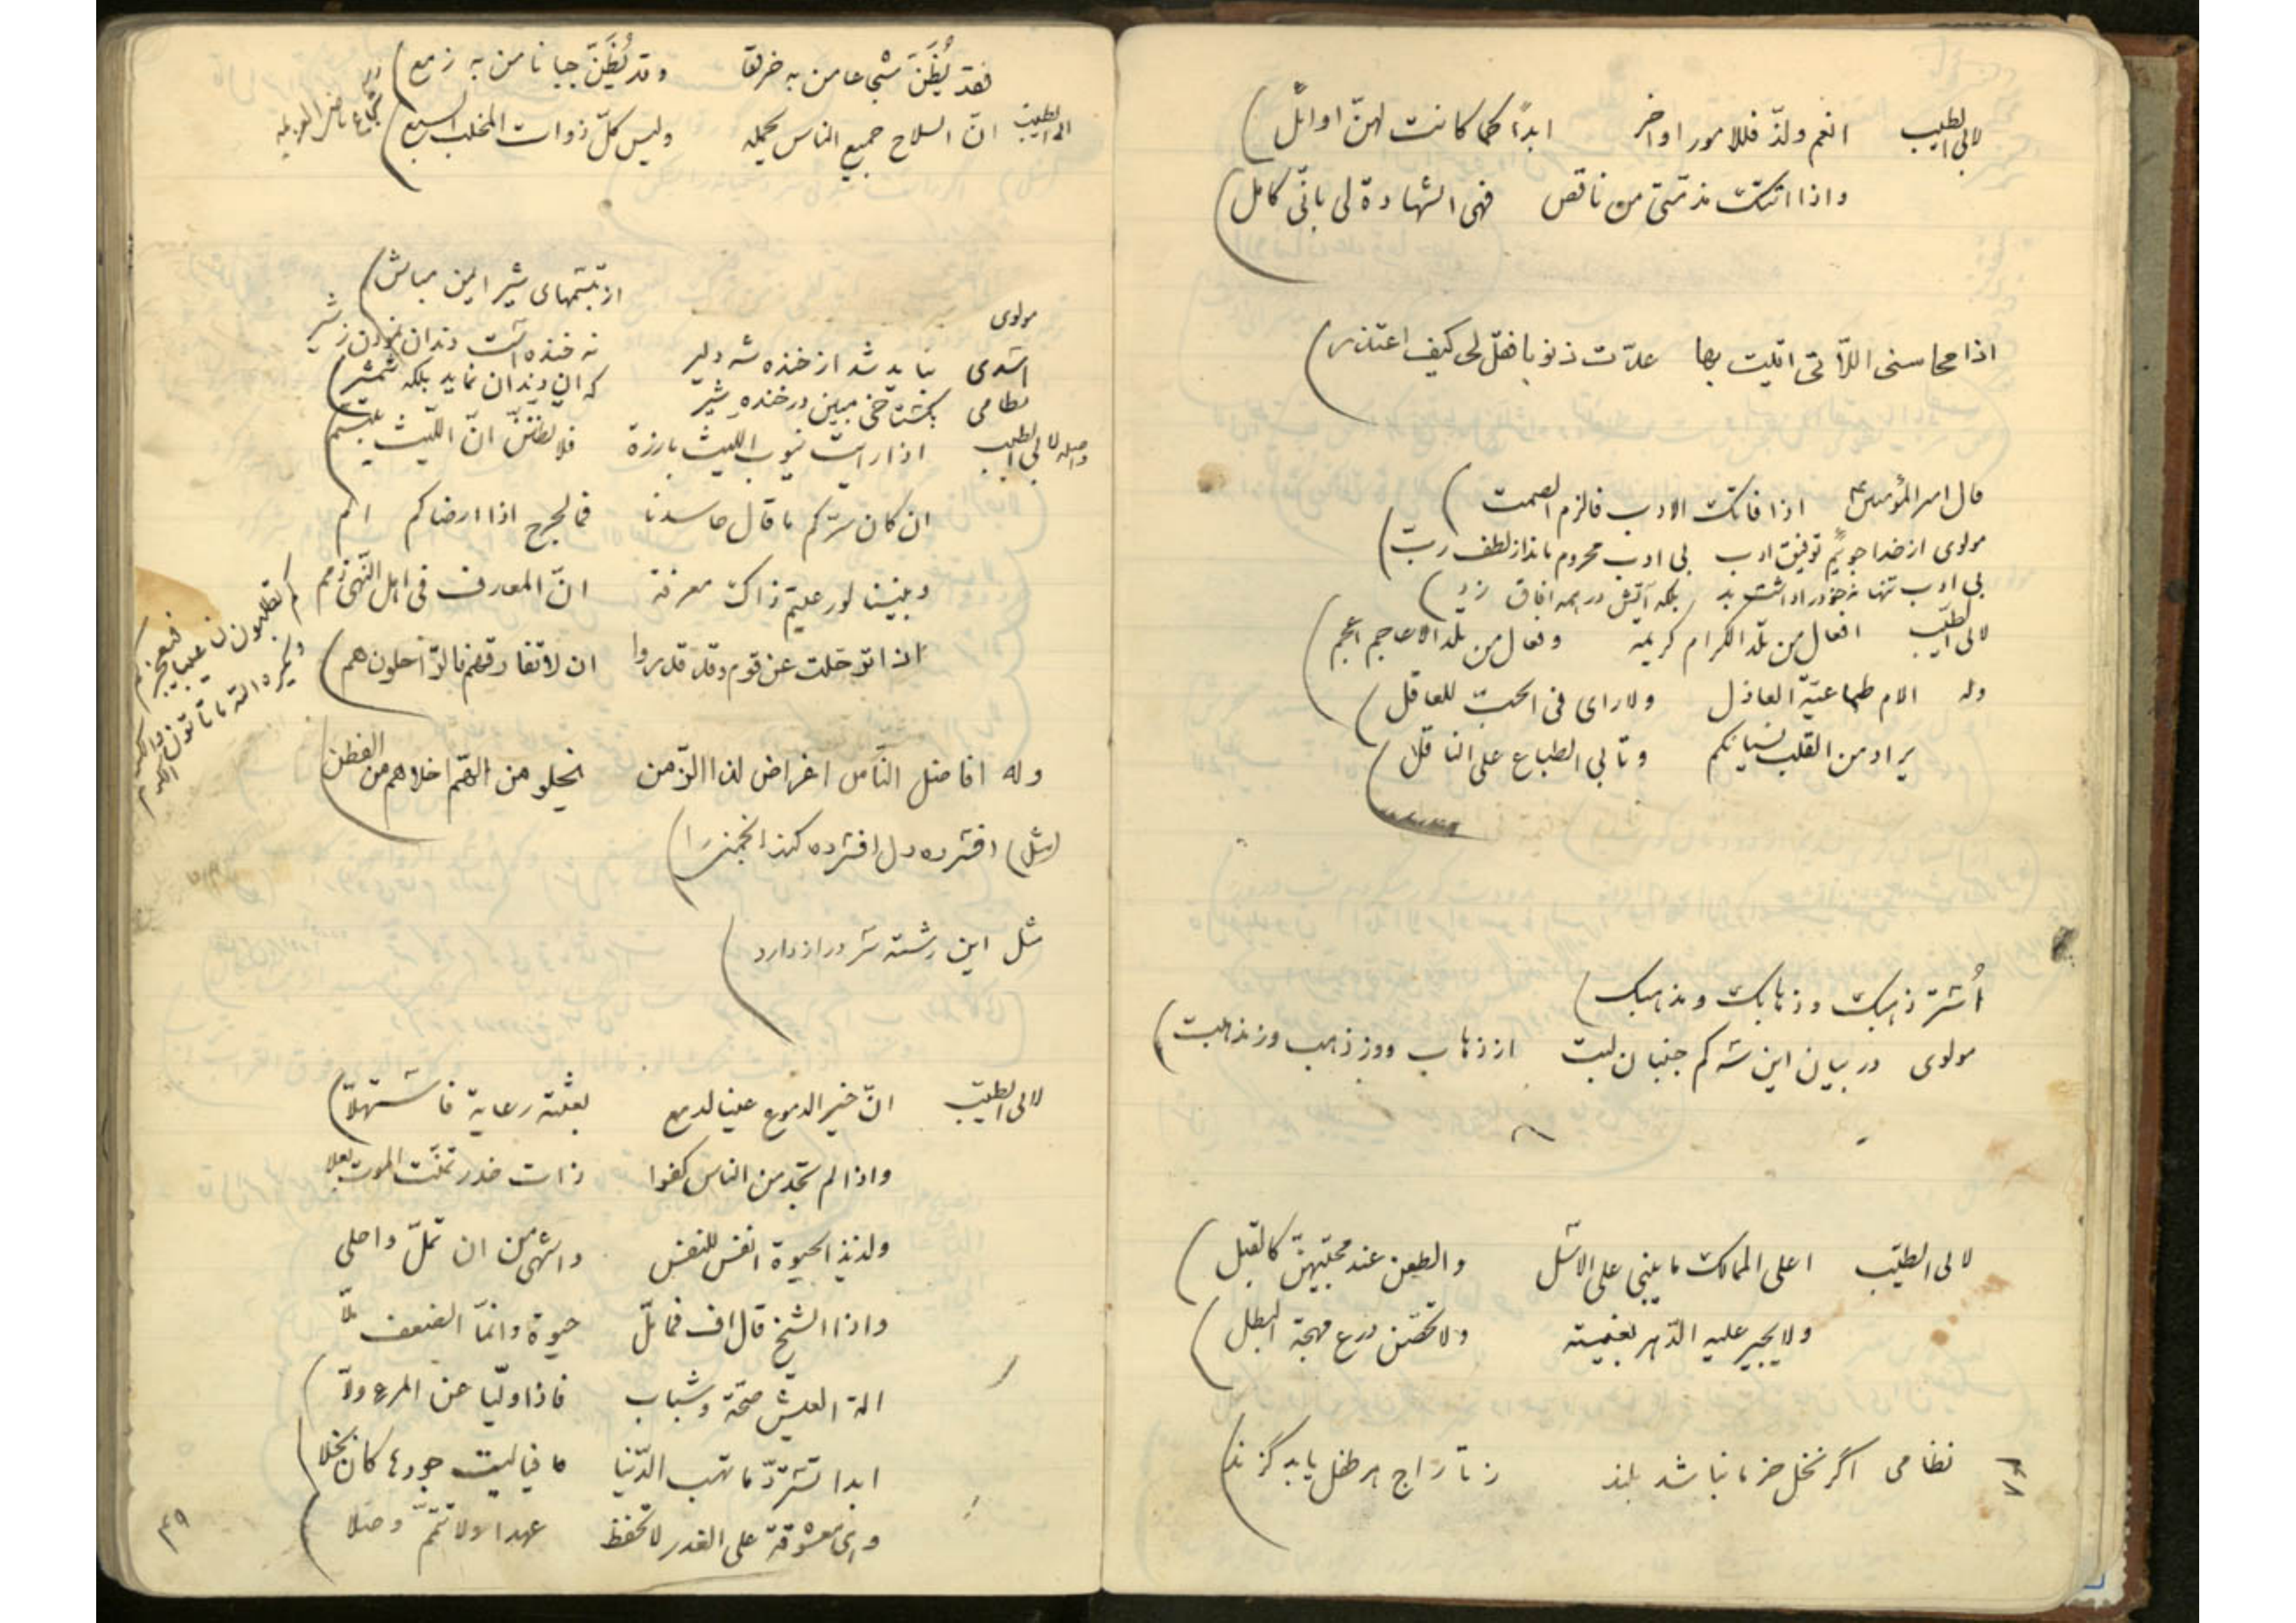 لابی الطیب انعم ولذّ فللامور اواخر ابدًا کما کانت لهنّ اوائل
واذا اتتک مذمّتی من ناقص فهی الشهادة لی بانّی کامل
اذا محاسنی اللاّتی اتیت بها عدّت ذنوبا فقل لی کیف اعتذر
قال امیر المؤمنین ع اذا فاتک الادب فالزم الصمت
مولوی از خدا جوییم توفیق ادب بی ادب محروم ماند از لطف ربّ
بی ادب تنها نه خود را داشت بد بلکه آتش در همه افاق زد
لابی الطیّب افعال من تلد الکرام کریمه وفعال من تلد الاعاجم اعجم
وله الام طماعیّة العاذل ولا رای فی الحبّ للعاقل
یراد من القلب نسیانکم وتابی الطباع علی الناقل
اُستر ذهبک وذهابک ومذهبک
مولوی در بیان این سه کم جنبان لبت از ذهاب و وز ذهب وز مذهبت
لابی الطیّب اعلی الممالک ما یبنی علی الاسّل والطعن عند محبّیهنّ کالقبل
ولا یجیر علیه الدّهر بغیته ولا تحصّن درع مهجة البطل
نظامی اگر نخل خرما نباشد بلند ز تاراج هر طفل یابد گزند
فقد یُظَنّ شجاعا من به خرقا وقد یُظَنّ جبانا من به زمع
لابی الطیّب انّ السلاح جمیع الناس یحمله ولیس کلّ ذوات المخلب السبع
مولوی از تبسّمهای شیر ایمن مباش
اسدی نباید شد از خنده شه دلیر نه خنده است دندان نمودن ز شیر
نظامی بگستاخی مبین در خندهٔ شیر که ان دندان نماید بلکه شمشیر
واصله لابی الطیب اذا رایت نیوب اللیث بارزة فلا تظننّ انّ اللّیث یبتسم
ان کان سرّکم ما قال حاسدنا فما لجرح اذا ارضاکم الم
وبیننا لو رعیتم ذاک معرفة انّ المعارف فی اهل النّهی ذمم
کم تطلبون لنا عیبا فیعجزکم ویکره الله ما تاتون والکرم
اذا ترحّلت عن قوم وقد قدروا ان لا تفارقهم فالرّاحلون هم
وله افاضل النّاس اغراض لذا الزّمن یخلو من الهمّ اخلاهم من الفطن
(مثل) افسرده دل افسرده کند انجمنی را
مثل این رشته سر دراز دارد
لابی الطیّب انّ خیر الدموع عینا لدمع بعثته رعایة فاستهلاّ
واذا لم تجد من الناس کفوا ذات خدر تمنّت الموت بعلا
ولذیذ الحیوة انفس للنفس واشهی من ان تملّ واحلی
واذا الشیخ قال اف فما ملّ حیوة وانمّا الضعف ملاّ
الة العیش صحّة وشباب فاذا ولّیا عن المرء ولاّ
ابدا تستردّ ما تهب الدّنیا فیا لیت جودها کان بخلا
وهی معشوقة علی الغدر لا تحفظ عهدا ولا تتمّم وصلا
۴۹